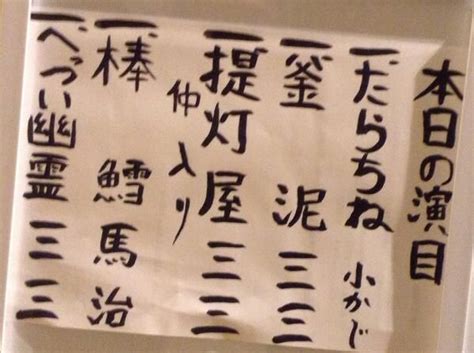 本日の演目
一 たらちね 小かじ
一 釜泥 三三
一 提灯屋 三三
仲入り
一 棒鱈 馬治
一 へっつい幽霊 三三